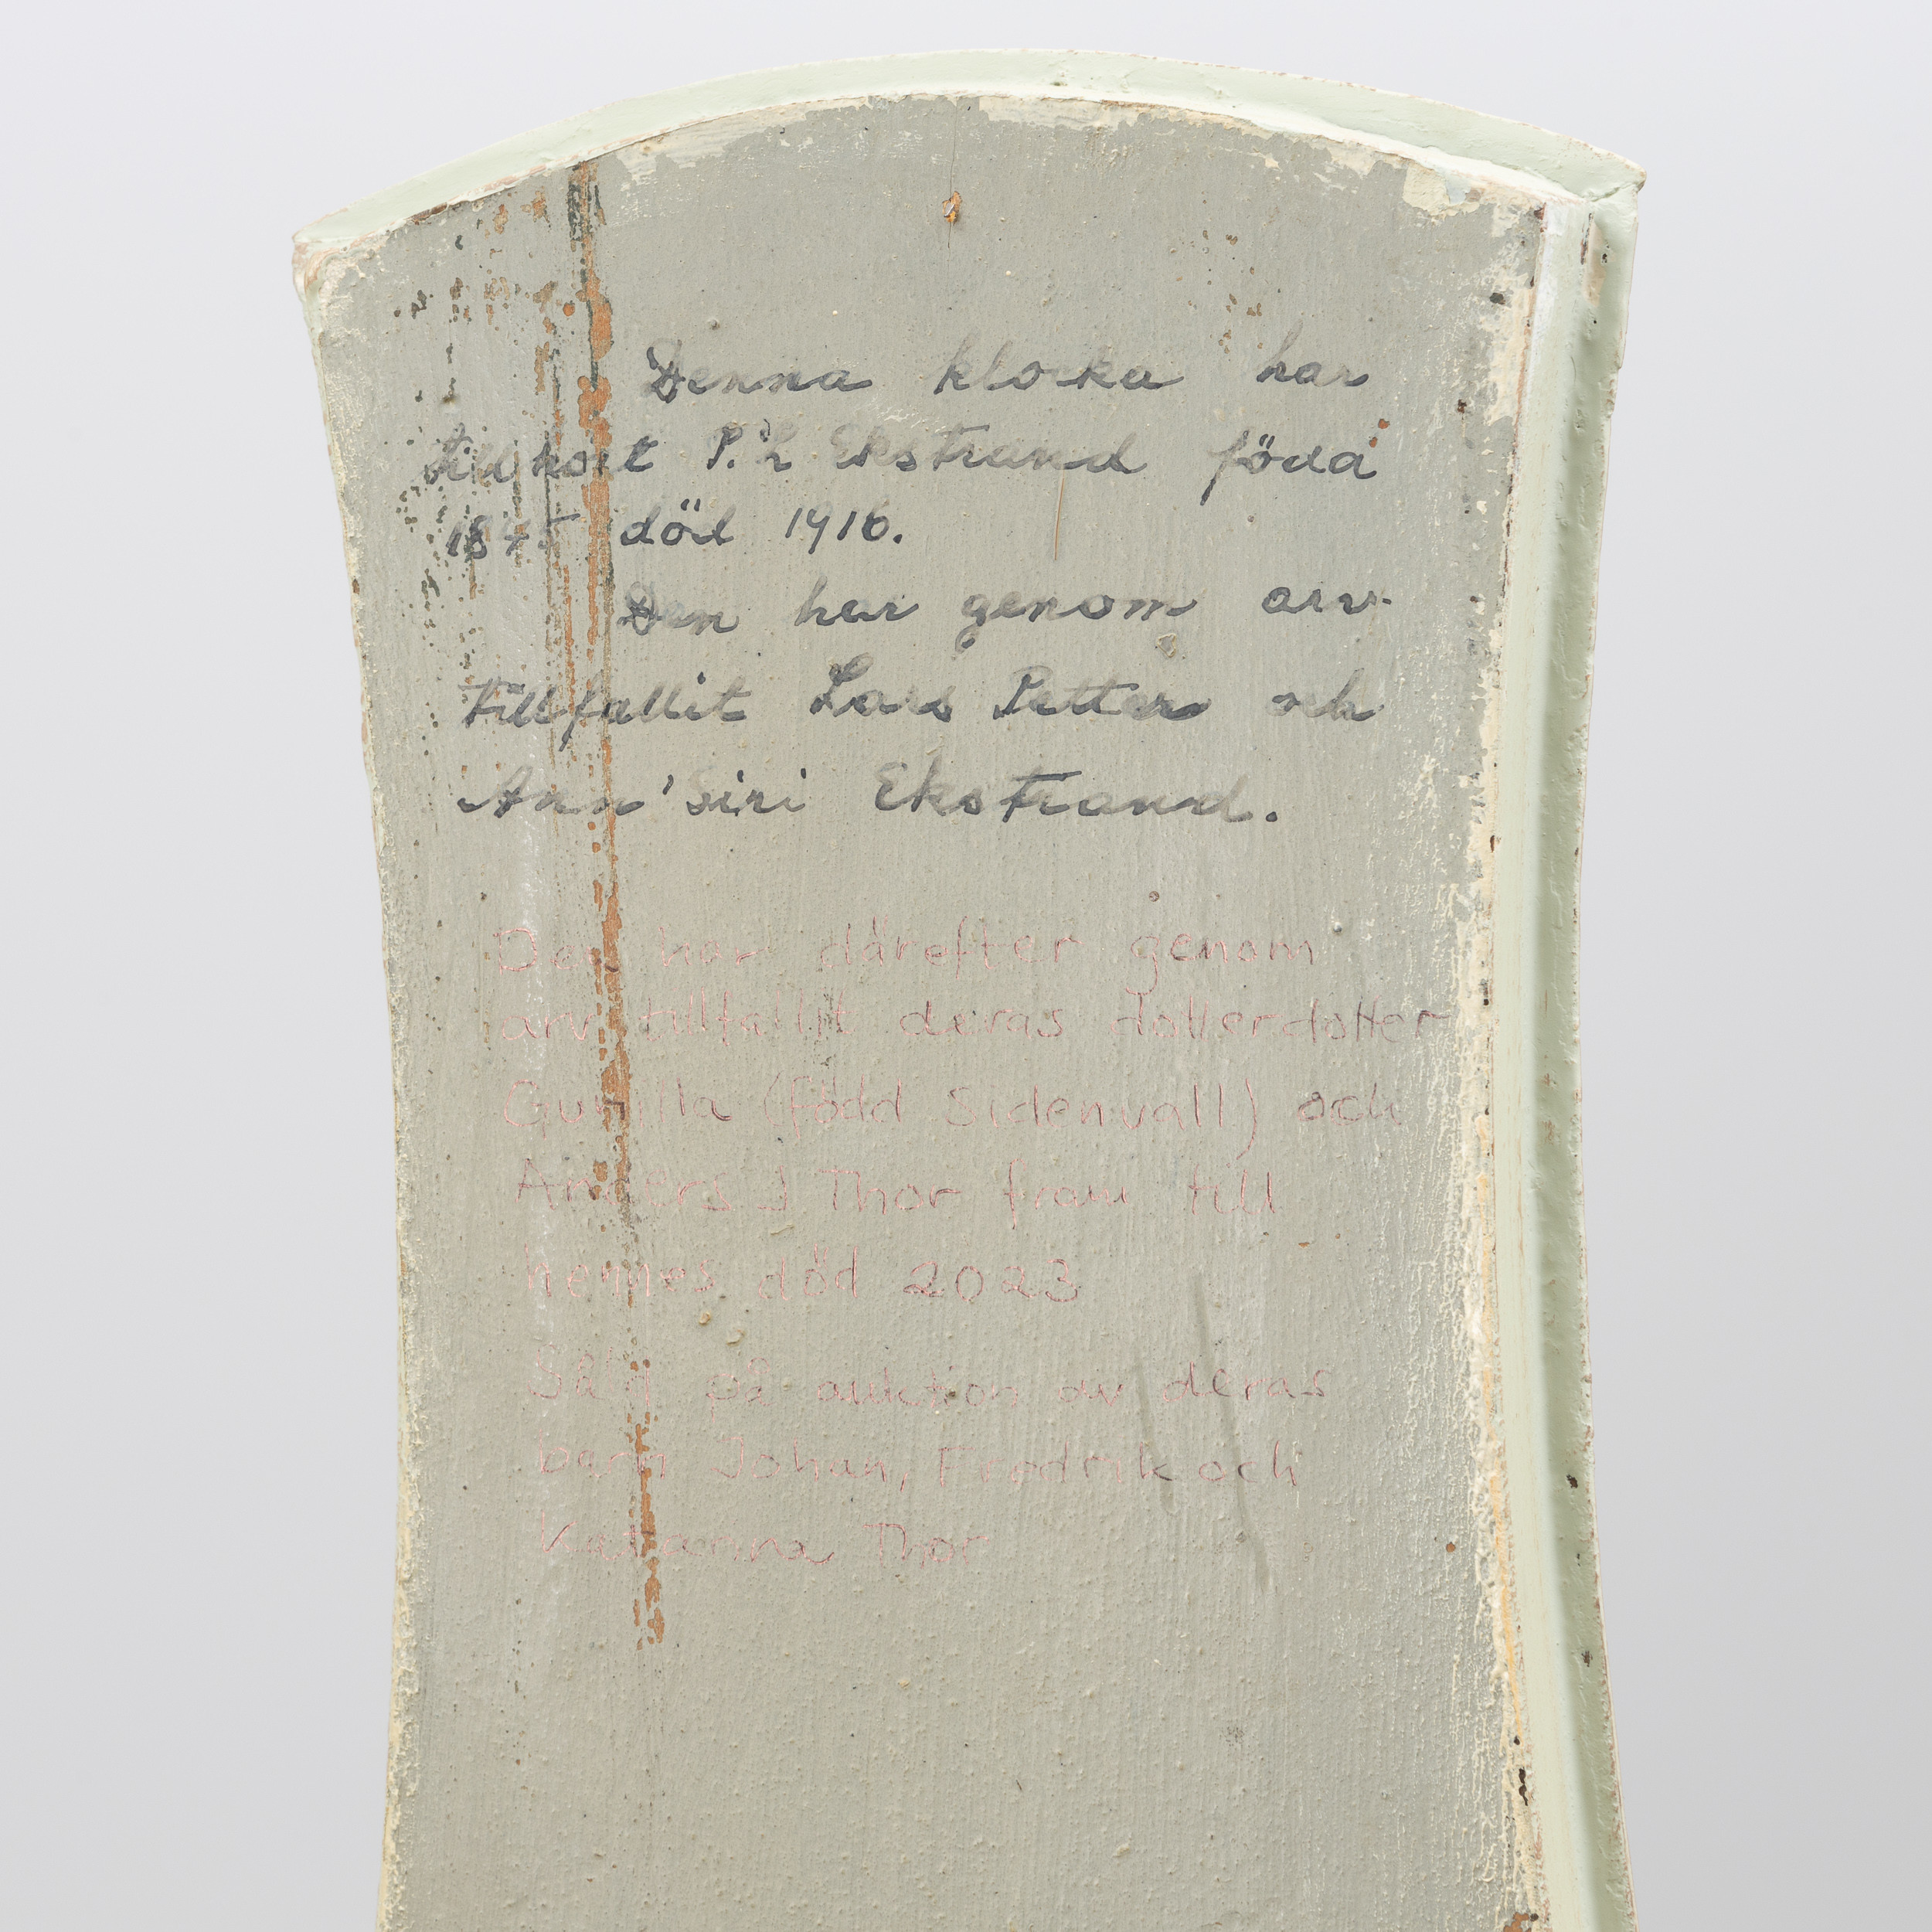 Denna klocka har
tillhört P.L Ekstrand född
död 1916.
Den har genom arv
tillfallit Lars Petter och
Ann'Siri Ekstrand.
Den har därefter genom
arv tillfallit deras dotterdotter
Gunilla (född Sidenvall) och
Anders J Thor fram till
hennes död 2023
Såld på auktion av deras
barn Johan, Fredrik och
Katarina Thor